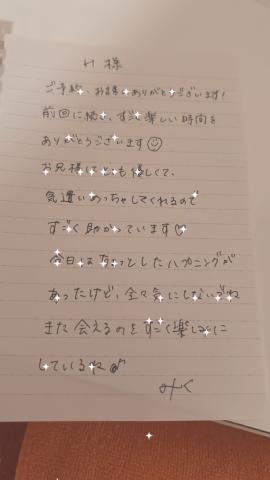 H 様
ご予約、お時間ありがとうございます!
前回に続き、すごく楽しい時間を
ありがとうございます☺
お兄様はとても優しくて、
気遣いめっちゃしてくれるので
すごく助かっています♡
今日はちょっとしたハプニングが
あったけど、全々気にしないでね
また会えるのをすごく楽しみに
しているね